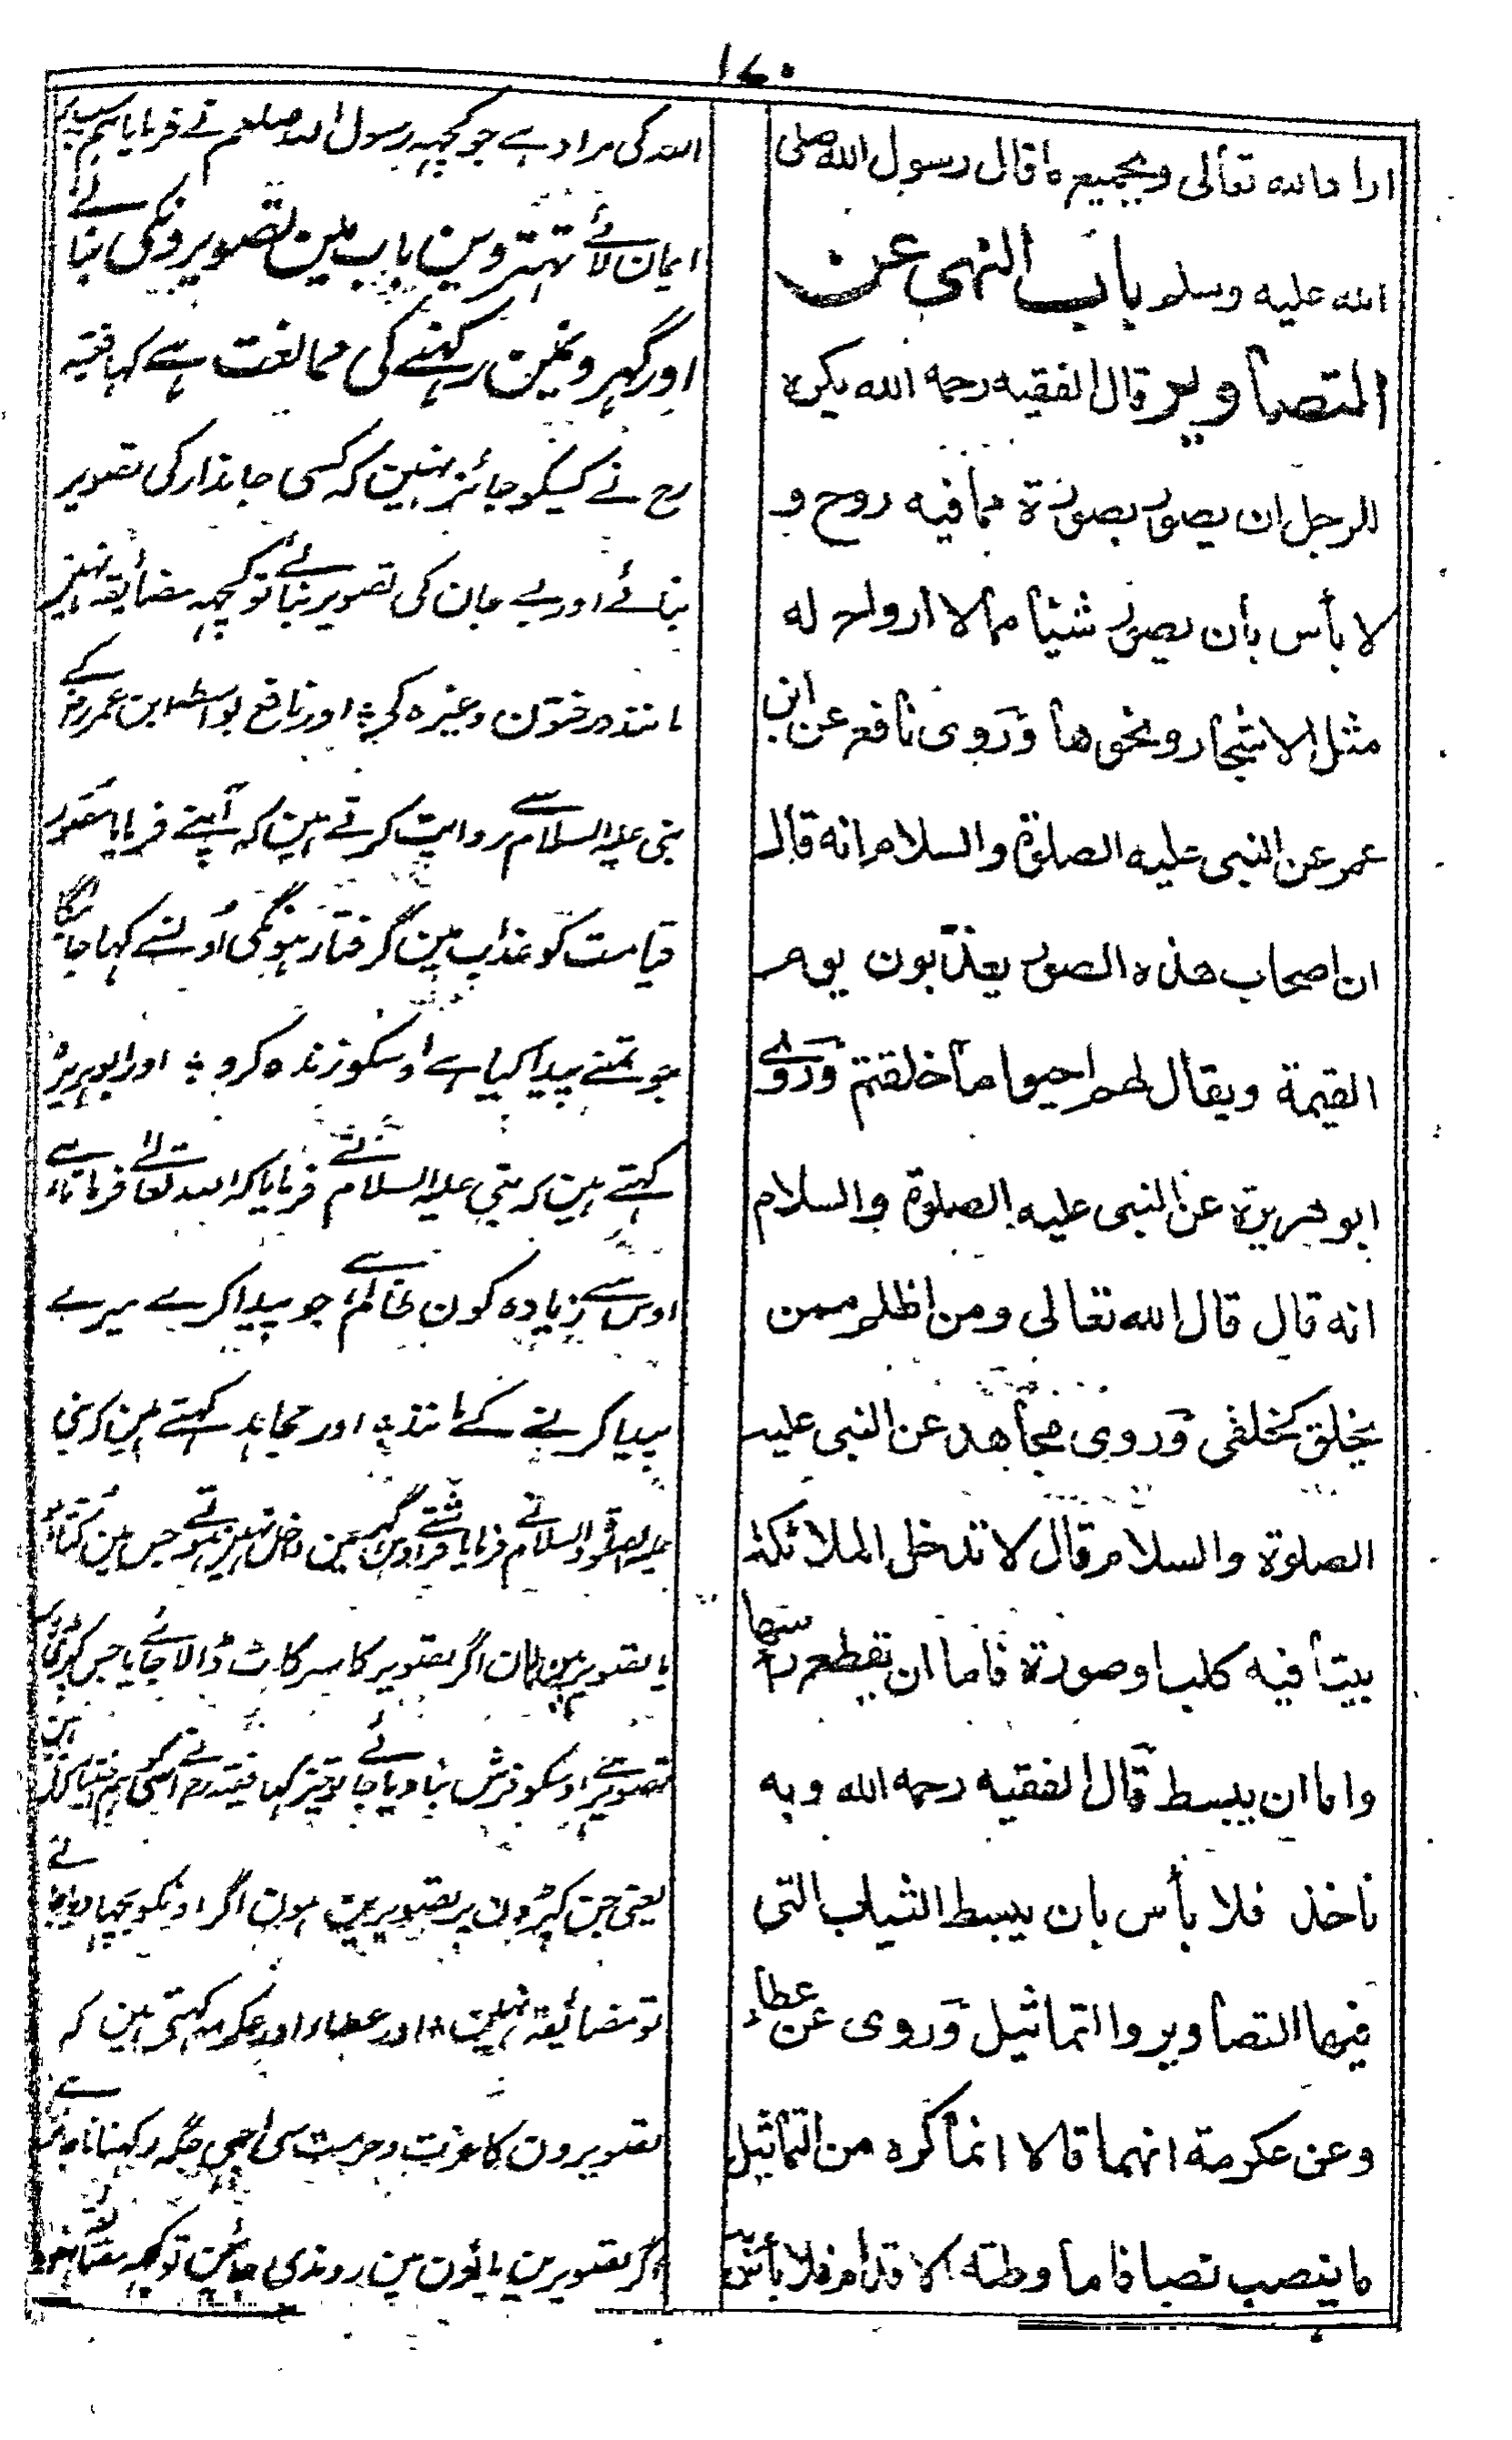 ۱۷۰
اراد الله تعالى وبجميع ما قال رسول الله صلى
الله عليه وسلم باب النهى عن
التصاوير قال الفقيه رحمه الله يكره
للرجل ان يصور بصورة مما فيه روح و
لا بأس بان يصور شيئا مما لا ارواح له
مثل الاشجار ونحوها وروى نافع عن ابن
عمر عن النبى عليه الصلوة والسلام انه قال
ان اصحاب هذه الصور يعذبون يوم
القيمة ويقال لهم احيوا ما خلقتم وروى
ابو هريرة عن النبى عليه الصلوة والسلام
انه قال قال الله تعالى ومن اظلم ممن
يخلق كخلقى وروى مجاهد عن النبى عليه
الصلوة والسلام قال لا تدخل الملائكة
بيتا فيه كلب او صورة فاما ان تقطع رأسها
واما ان يبسط قال الفقيه رحمه الله وبه
ناخذ فلا بأس بان يبسط الثياب التى
فيها التصاوير والتماثيل وروى عن عطاء
وعن عكرمة انهما قالا انما كره من التماثيل
ما ينصب نصبا فاما ما وطئه الاقدام فلا بأس
الله کی مراد ہے جو کچہہ رسول اللہ صلعم نے فرمایا ہم سب پر
ایمان لائے تہترویں باب میں تصویرونکی بنانے
اور گہرونمیں رکہنے کی ممانعت ہے کہا فقیہ
رح نے کسیکو جائز نہیں کہ کسی جاندار کی تصویر
بنائے اور بے جان کی تصویر بنائے تو کچہہ مضائقہ نہیں
مانند درختوں وغیرہ کے اور نافع بواسطہ ابن عمر رض کے
نبی علیہ السلام سے روایت کرتے ہیں کہ آپنے فرمایا مصور
قیامت کو عذاب میں گرفتار ہونگی اُونسے کہا جائیگا
جو تمنے پیدا کیا ہے اوسکو زندہ کرو اور ابو ہریرہ
کہتے ہیں کہ نبی علیہ السلام نے فرمایا کہ اللہ تعالے فرماتا ہے
اوس سے زیادہ کون ظالم ہے جو پیدا کرے میرے
پیدا کرنے کے مانند اور مجاہد کہتے ہیں کہ نبی
علیہ الصلوۃ والسلام نے فرمایا فرشتے اوس گہر میں داخل نہیں ہوتے جس میں کتا
یا تصویر ہو ہاں اگر تصویر کا سر کاٹ ڈالا جائے یا جس کپڑے
تصویر ہے اوسکو فرش بنا دیا جائے تو خیر کہا فقیہ رح نے اسی کو ہم اختیار کرتے ہیں
یعنی جن کپڑوں پر تصویریں ہوں اگر اونکو بچہا دیا جائے
تو مضائقہ نہیں اور عطاء اور عکرمہ کہتی ہیں کہ
تصویروں کا عزت وحرمت سی اچہی جگہ رکہنا ناجائز ہے
اگر تصویریں پاؤں میں روندی جائیں تو کچہہ مضائقہ نہیں